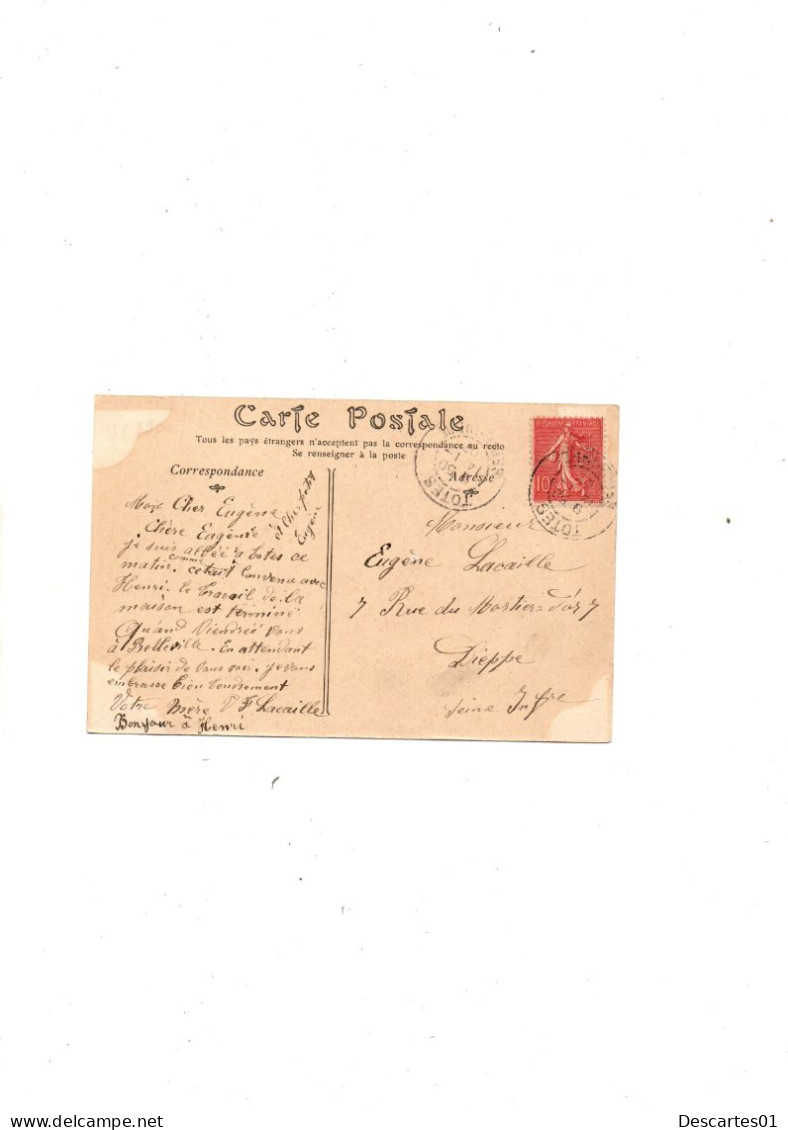 Carte Postale
Tous les pays étrangers n'acceptent pas la correspondance au recto
Se renseigner à la poste
Correspondance
Adresse
TOTES
10
TOTES
Mon Cher Eugène
Chère Eugènie
et Cher petit
Eugène
je suis allée à totes ce
matin. comme cetait convenu avec
Henri. le travail de la
maison est terminé
Quand Viendreé vous
à Belleville. En attendant
le plaisir de vous voir. je vous
embrasse bien tendrement
Votre mère Lacaille
Bonjour à Henri
Monsieur
Eugène Lacaille
7 Rue du Mortier d'or 7
Dieppe
Seine Infre
Descartes01